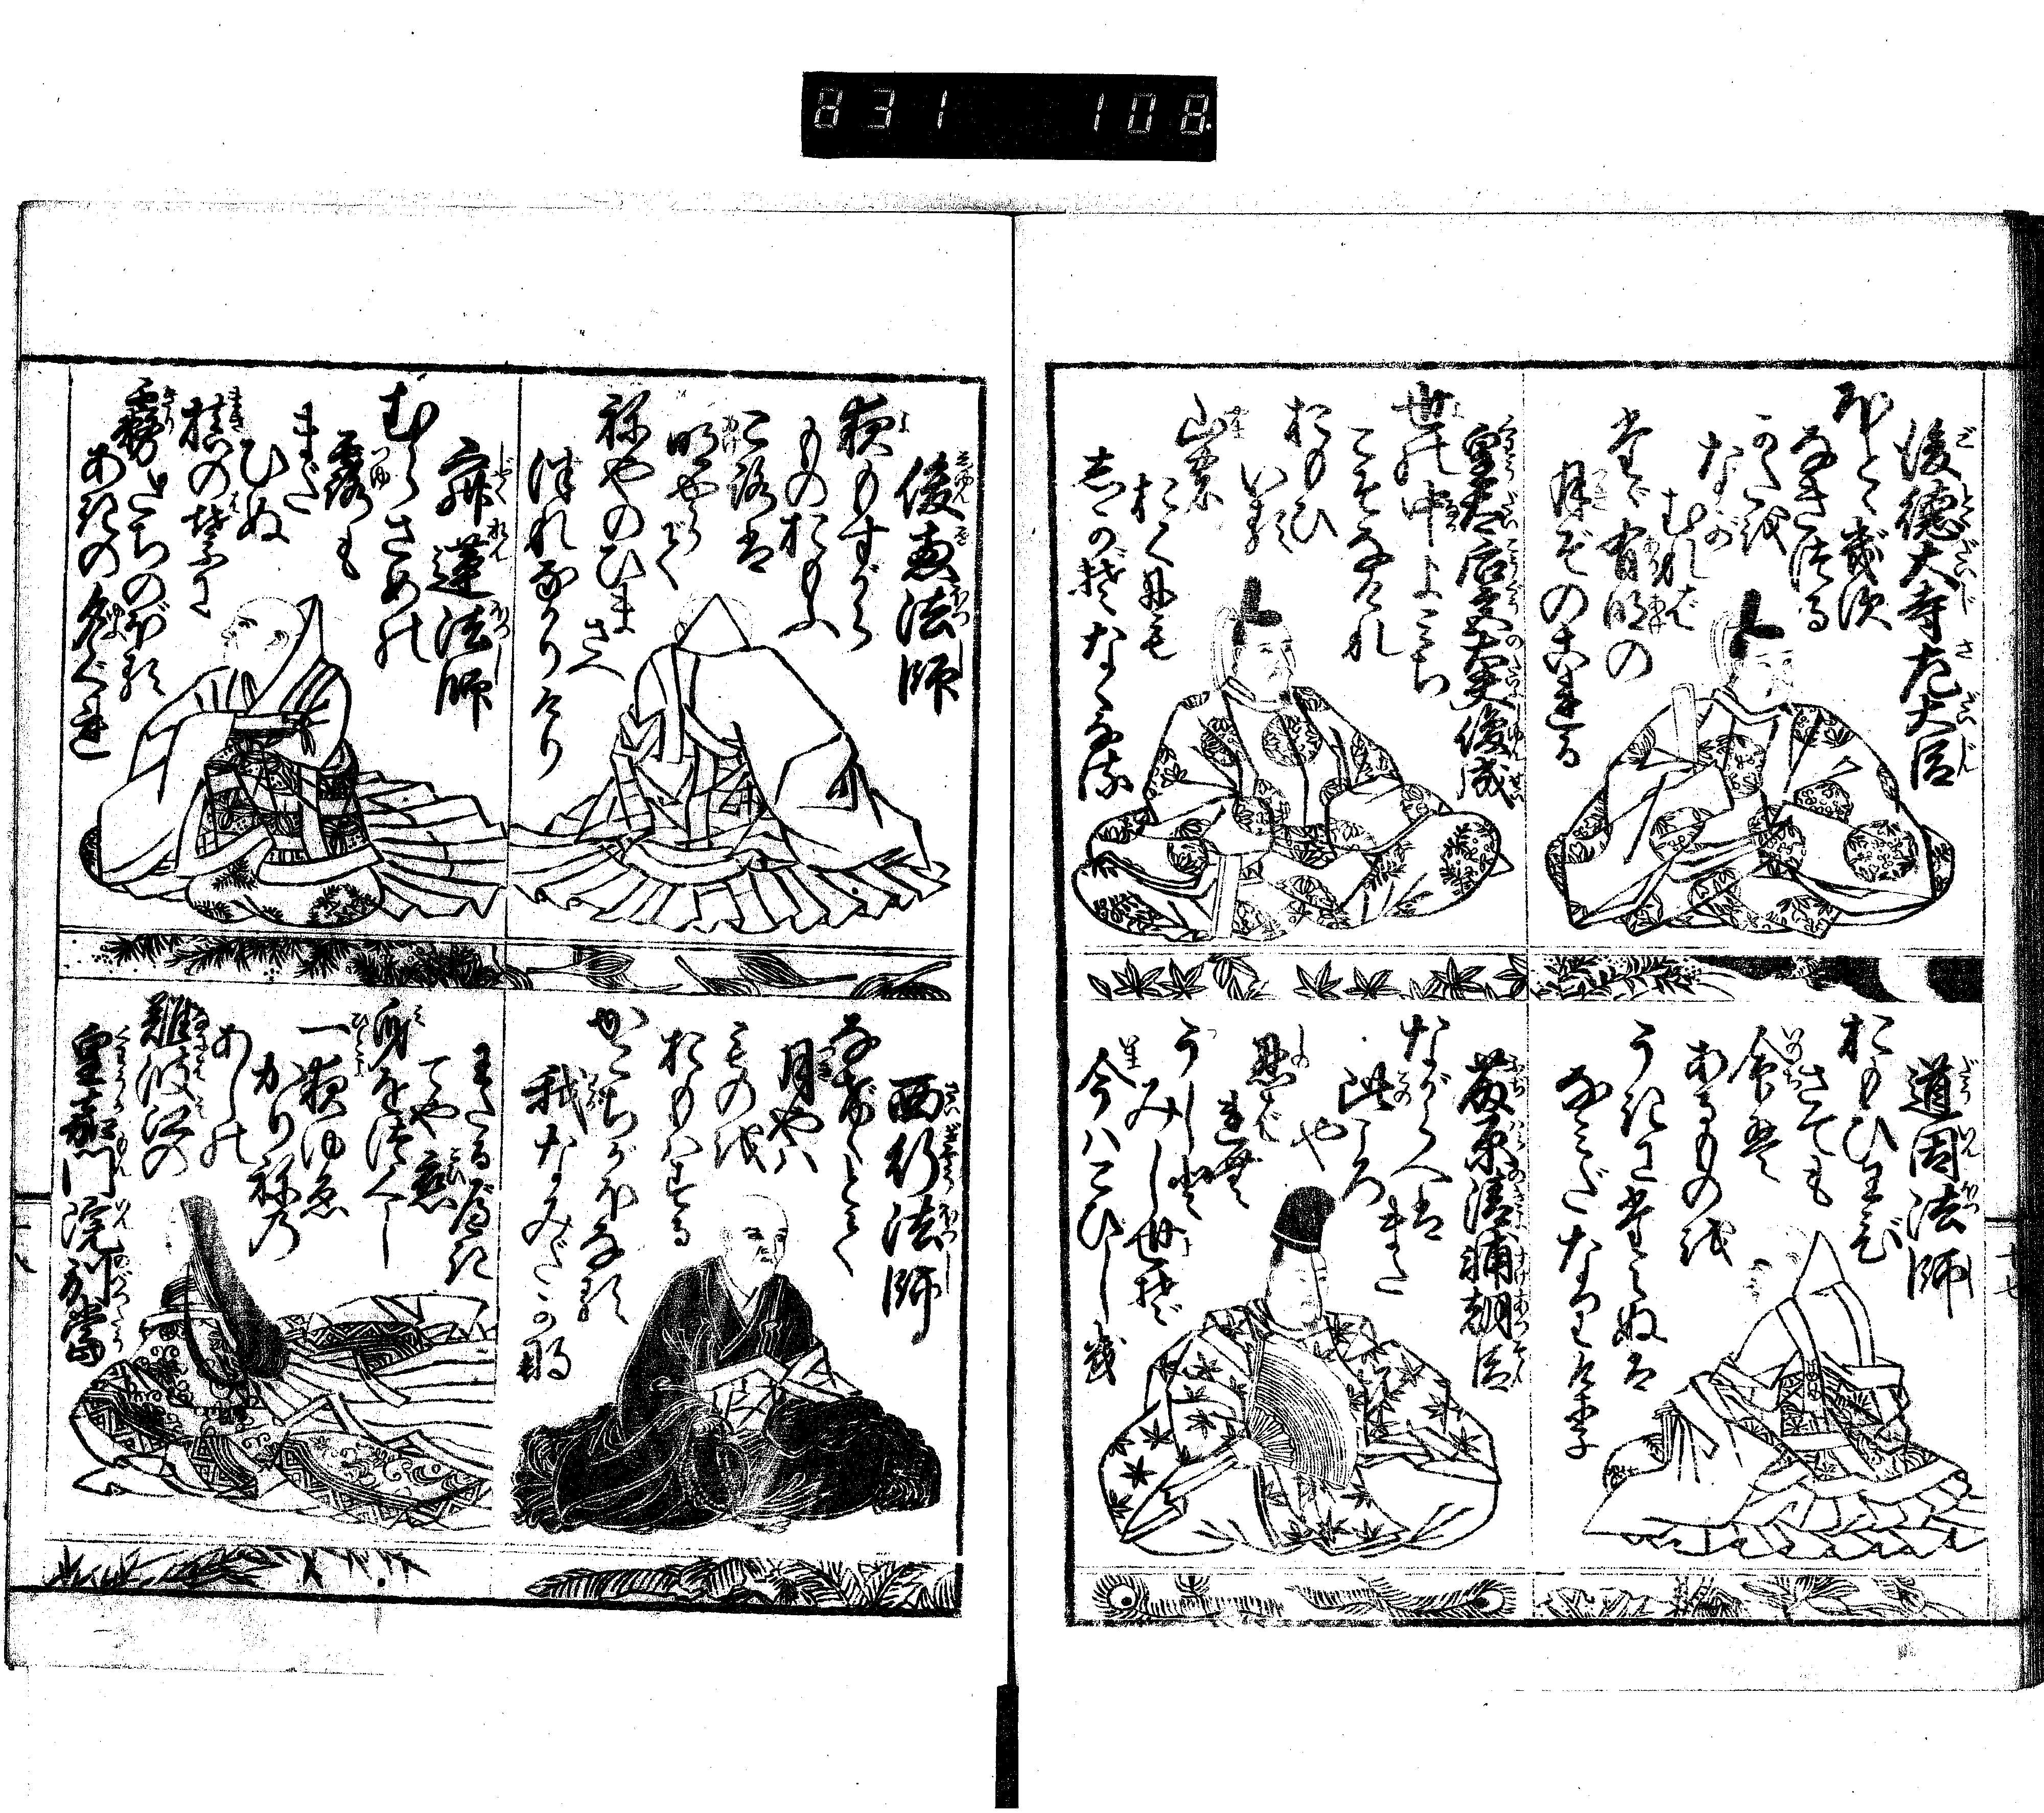 831 108
後徳大寺左大臣
郭公
なきつる
かたを
ながむれば
たゞ有明の
月ぞのこれる
皇太后宮大夫俊成
世の中よみち
こそなけれ
おもひ
いる
山の
おくにも
しかぞなくなる
道因法師
おもひわび
さても
命は
あるものを
うきにたえぬは
なみだなりけり
藤原清輔朝臣
ながらへば
また
此ごろ
や
忍ば
れむ
うしと
みし世ぞ
今ハこひしき
俊恵法師
夜もすがら
ものおもふ
ころは
明やらで
ねやのひま
さへ
つれなかりけり
寂蓮法師
むらさめの
露も
まだ
ひぬ
槙の葉に
霧たちのぼる
あきの夕ぐれ
西行法師
なげゝとて
月やハ
ものを
おもハする
かこちがほなる
我なみだかな
皇嘉門院別当
難波江の
あしの
かりねの
一夜ゆゑ
身をつくし
てや恋
わたるべき